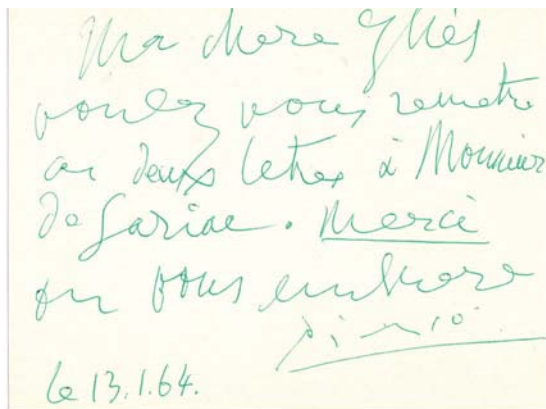 Ma chère Ynès
voulez vous remetre
ces deux letres à Monsieur
de Sariac. Merci
on vous embrasse
Picasso
le 13.1.64.